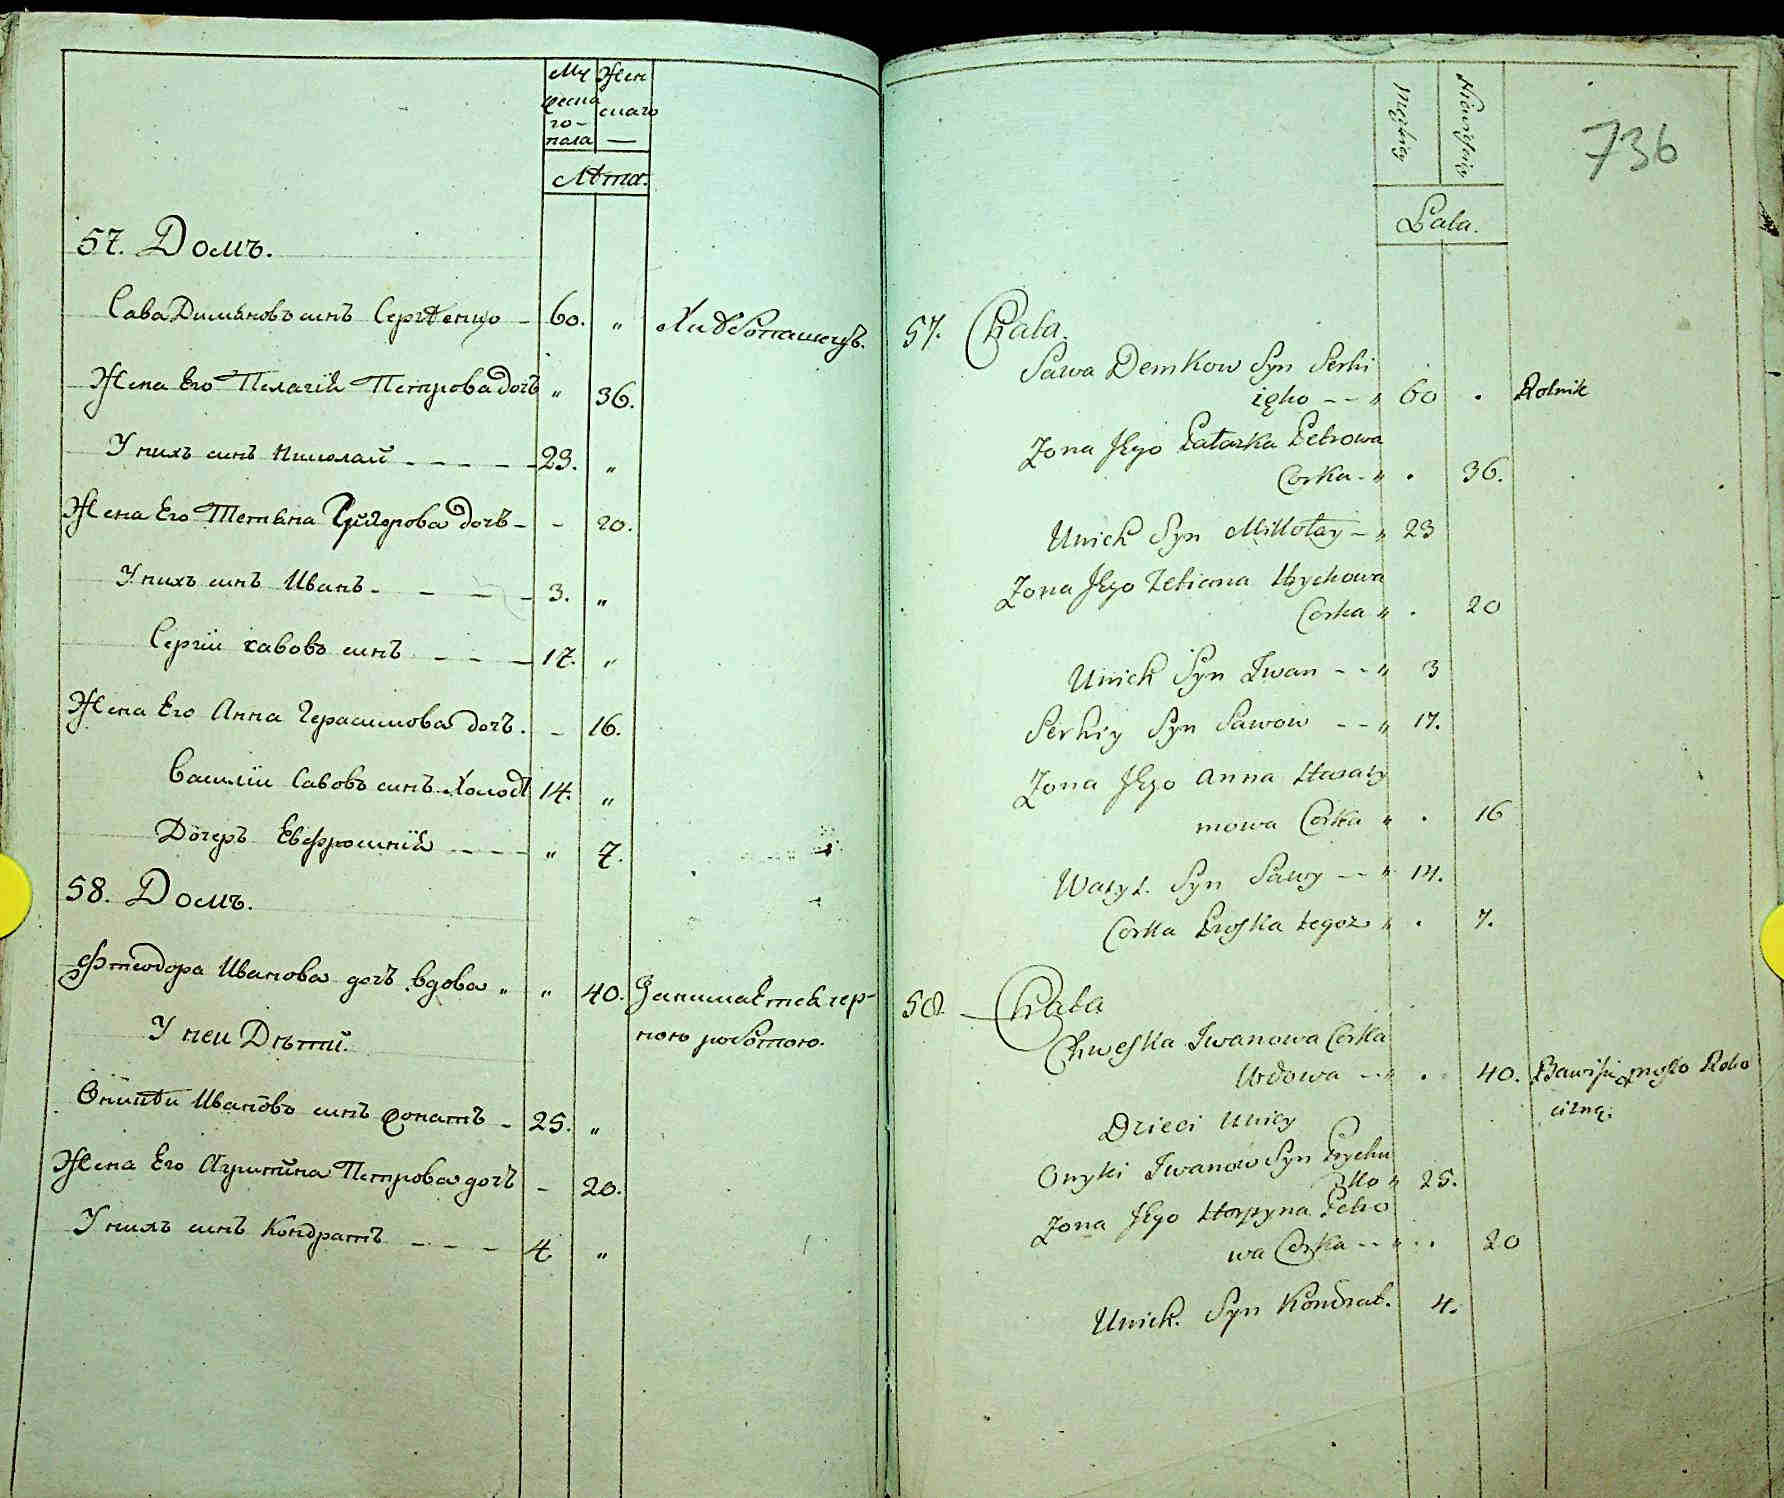 Му Жен
жеска скаго
го –
пола —
Лѣта.
57. Домъ.
Сава Димяновъ синъ Сергѣенко – 60. „ Хлѣбопашецъ.
Жена Его Пелагія Петрова дочъ „ 36.
У нихъ синъ Николай - - - - - 23. „
Жена Его Тетяна Григорова дочъ - - 20.
У нихъ синъ Иванъ - - - - 3. „
Сергій савовъ синъ - - - 17. „
Жена Его Анна Герасимова дочъ. - 16.
Василій Савовъ синъ холостъ 14. „
Дочерь Евфросинія - - - - „ 7.
58. Домъ.
Фтеодора Иванова дочъ вдова „ „ 40. Занимается чер-
У неи Дѣти. ною роботою.
Ивановъ синъ - 25. „
Жена Его Петрова дочъ - 20.
У нихъ синъ Кондратъ - - - 4 „
736
Lata.
57. Chata.
Sawa Demkow Syn Serhi
ięko - - „ 60 . Rolnik
Zona Jego Pałaszka Petrowa
Corka - „ . 36.
Unich Syn Mikołay - „ 23
Zona Jego Tetiana Hrychowa
Corka „ . 20
Unich Syn Iwan - - „ 3
Serhiy Syn Sawow - - „ 17.
Zona Jego Anna Harasy
mowa Corka „ . 16
Wasyl. Syn Sawy - - „ 14.
Corka Proska tegoz „ . 7.
58 — Chata
Chweska Iwanowa Corka
Wdowa - - „ . 40. Robo
Dzieci Uniey cizną.
Onyki Iwanow Syn
25.
Zona Jego Horpyna Petro
wa Corka - - „ . . 20
Unich. Syn Kondrat. 4.